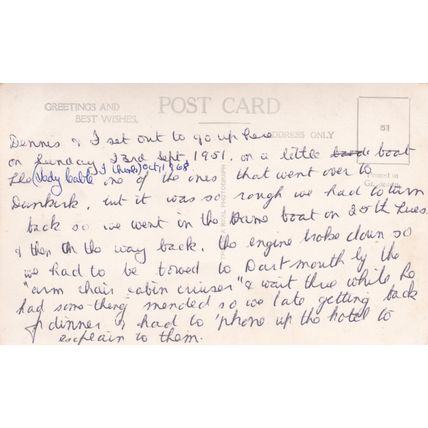 GREETINGS AND
BEST WISHES,
POST CARD
ADDRESS ONLY
Dennis & I set out to go up here
on Sunday 23rd Sept 1951. on a little boat
(Lady Cable I think) Oct, 1968
one of the ones that went over to
Dunkirk, but it was so rough we had to turn
back so we went in the same boat on 25th Tues
& then on the way back, the engine broke down so
we had to be towed to Dartmouth by the
"arm chair cabin cruiser" & wait there while he
had something mended so we late getting back
f dinner & had to 'phone up the hotel to
explain to them.